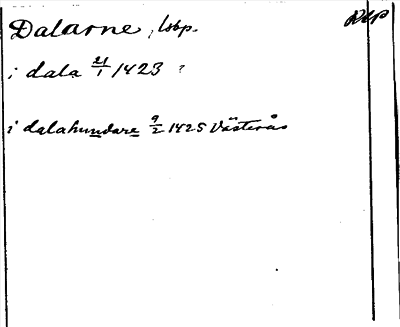 Dalarne, lsbp. DLP
i dala 21/1 1423 ?
i dalahundare 9/2 1425 Västerås